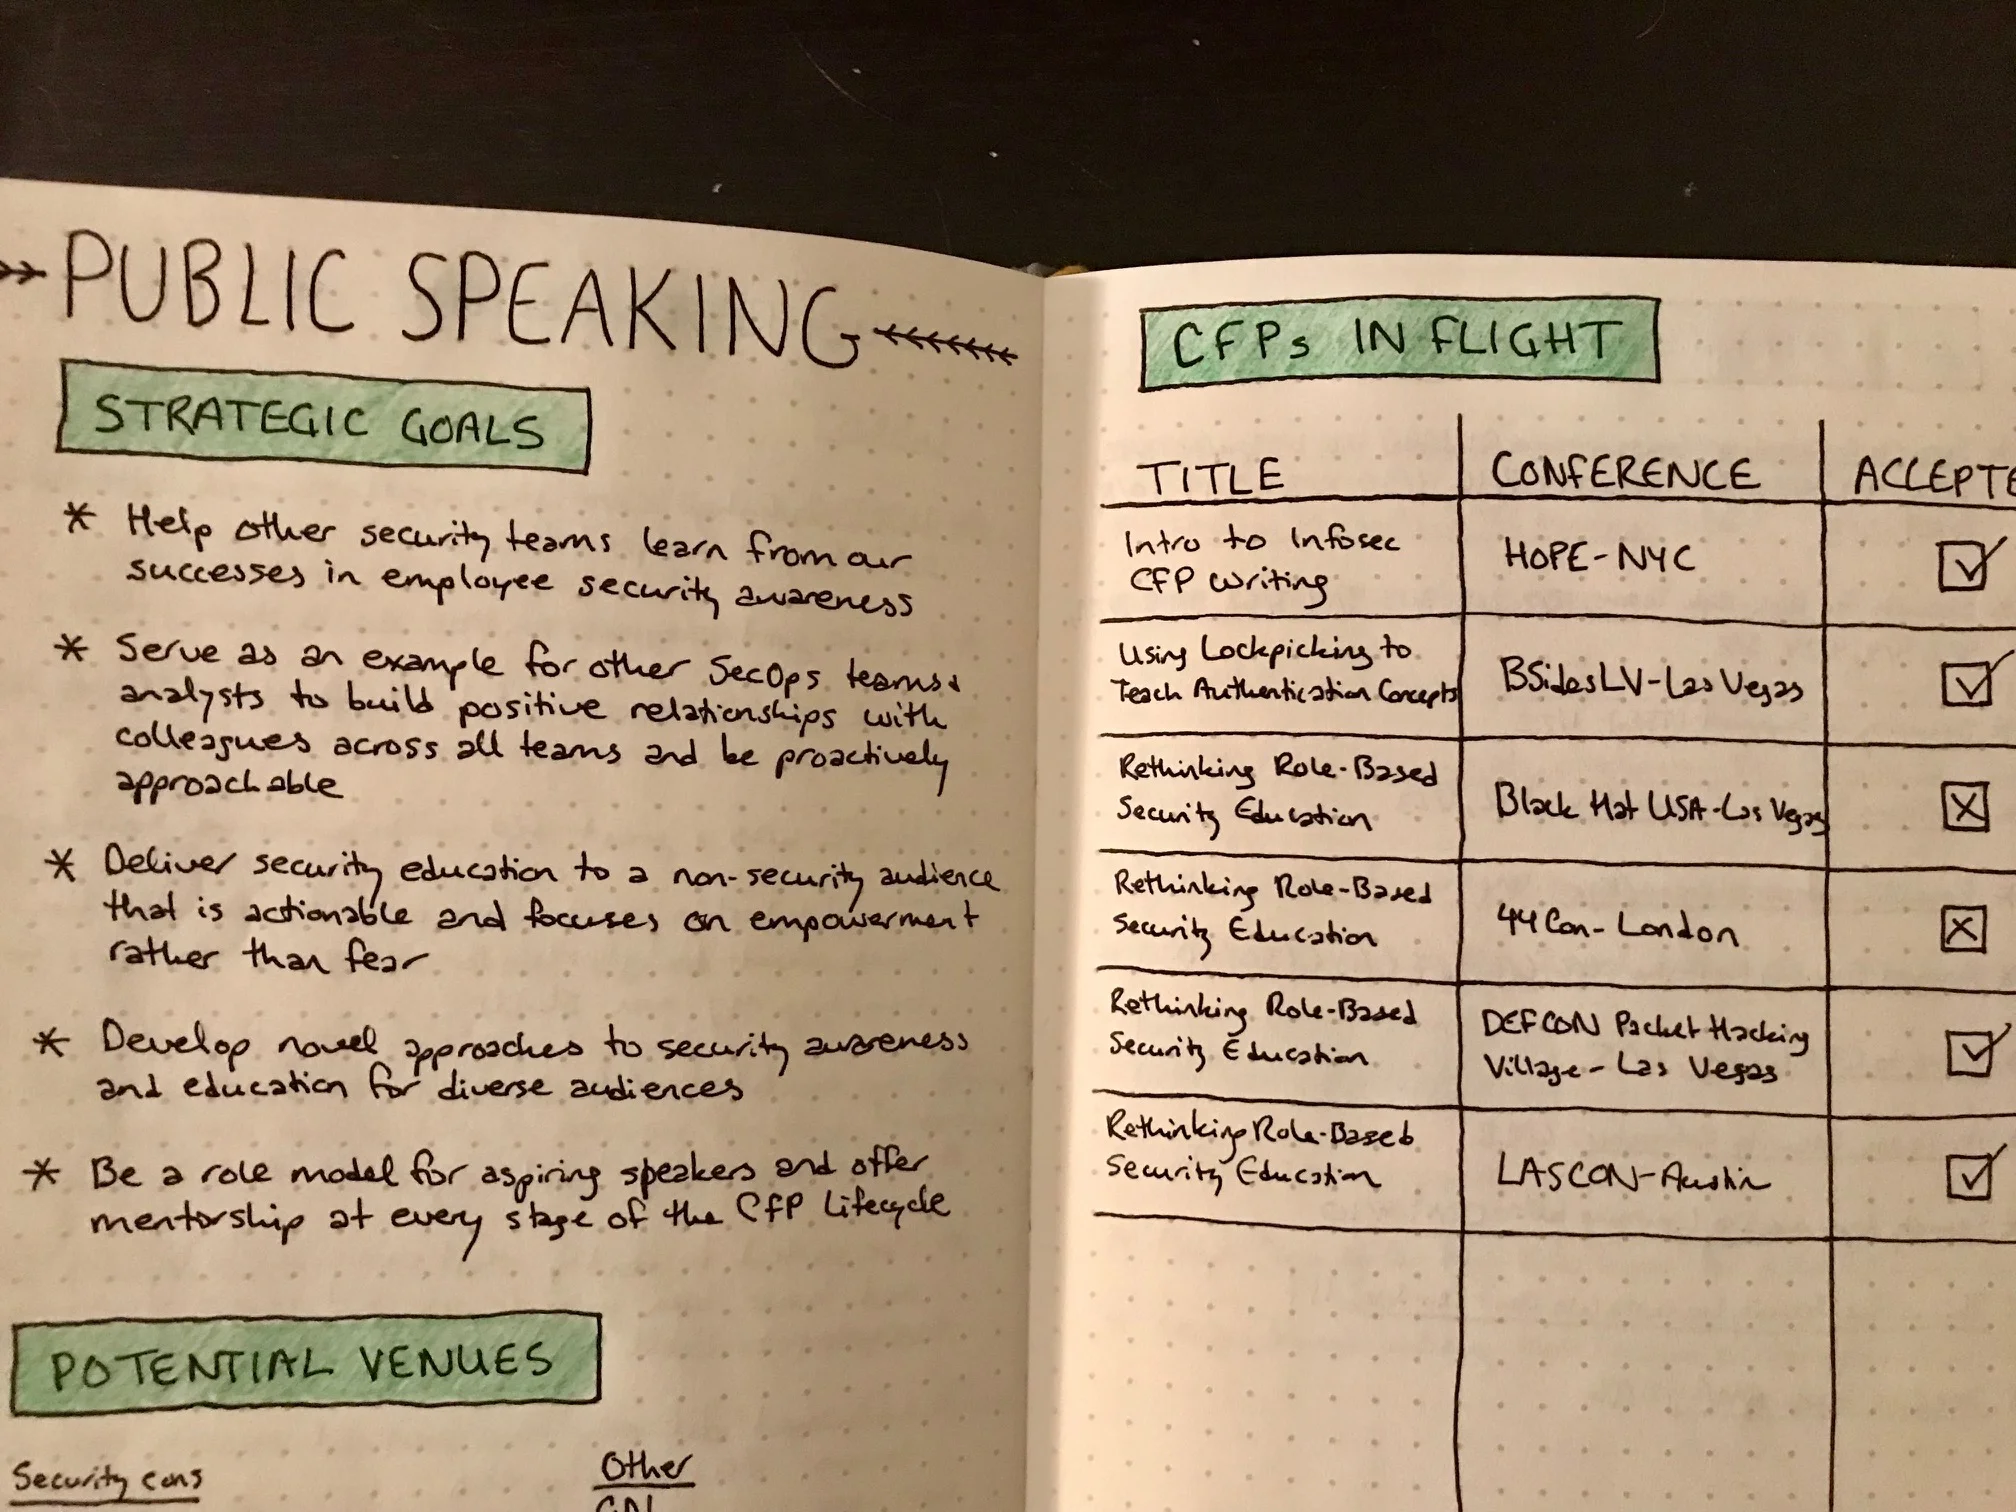 PUBLIC SPEAKING
STRATEGIC GOALS
* Help other security teams learn from our
successes in employee security awareness
* Serve as an example for other SecOps teams &
analysts to build positive relationships with
colleagues across all teams and be proactively
approachable
* Deliver security education to a non-security audience
that is actionable and focuses on empowerment
rather than fear
* Develop novel approaches to security awareness
and education for diverse audiences
* Be a role model for aspiring speakers and offer
mentorship at every stage of the CFP lifecycle
POTENTIAL VENUES
Security cons
Other
CFPs IN FLIGHT
TITLE CONFERENCE ACCEPTE
Intro to Infosec
CFP Writing
HOPE-NYC
Using Lockpicking to
Teach Authentication Concepts
BSidesLV-Las Vegas
Rethinking Role-Based
Security Education
Black Hat USA-Las Vegas
Rethinking Role-Based
Security Education
44Con-London
Rethinking Role-Based
Security Education
DEFCON Packet Hacking
Village-Las Vegas
Rethinking Role-Based
Security Education
LASCON-Austin